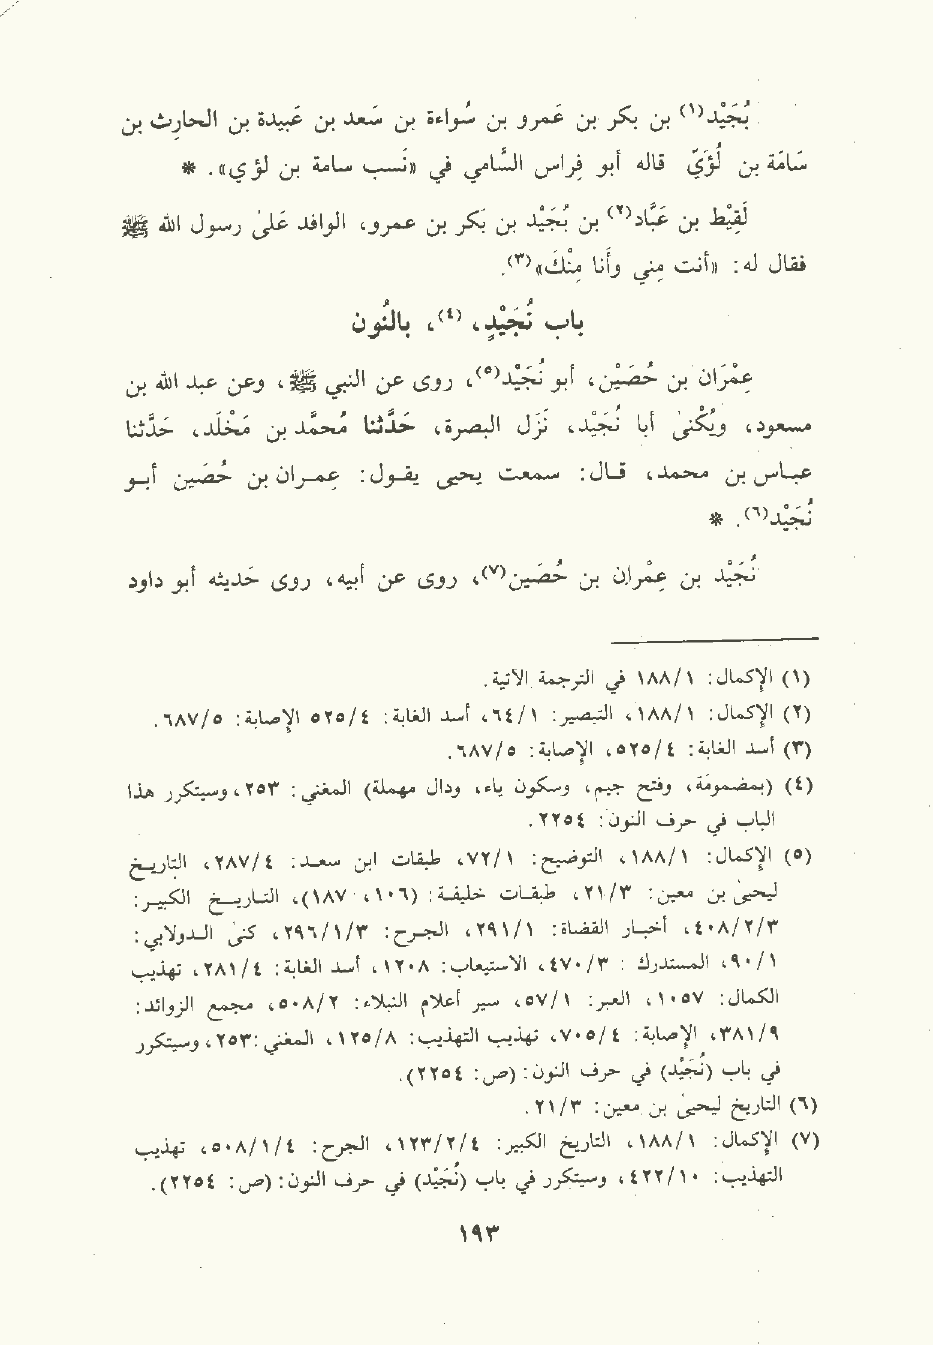 بُجَيْد(١) بن بكر بن عَمرو بن سُواءة بن سَعد بن عَبيدة بن الحارِث بن
سَامَة بن لُؤَيّ قاله أبو فِراس السَّامي في «نَسب سامة بن لؤي». *
لَقِيْط بن عَبَّاد(٢) بن بُجَيْد بن بَكر بن عمرو، الوافد عَلىٰ رسول الله ﷺ
فقال له: «أنت مِني وأنا مِنْكَ»(٣).
باب نُجَيْدٍ، (٤)، بالنُون
عِمْرَان بن حُصَيْن، أبو نُجَيْد(٥)، روى عن النبي ﷺ، وعن عبد الله بن
مسعود، ويُكْنىٰ أبا نُجَيْد، نزَلَ البصرة، حَدَّثنا مُحمَّد بن مَخْلَد، حَدَّثنا
عباس بن محمد، قال: سمعت يحيى يقول: عمران بن حُصَين أبو
نُجَيْد(٦). *
نُجَيْد بن عِمْران بن حُصَيْن(٧)، روى عن أبيه، روى حَديثه أبو داود
(١) الإكمال: ١/ ١٨٨ في الترجمة الآتية.
(٢) الإكمال: ١/ ١٨٨، التبصير: ١/ ٦٤، أسد الغابة: ٤/ ٥٢٥ الإصابة: ٥/ ٦٨٧.
(٣) أسد الغابة: ٤/ ٥٢٥، الإصابة: ٥/ ٦٨٧.
(٤) (بمضمومة، وفتح جيم، وسكون ياء، ودال مهملة) المغني: ٢٥٣، وسيتكرر هذا
الباب في حرف النون: ٢٢٥٤.
(٥) الإكمال: ١/ ١٨٨، التوضيح: ١/ ٧٢، طبقات ابن سعد: ٤/ ٢٨٧، التاريخ
ليحيىٰ بن معين: ٣/ ٢١، طبقات خليفة: (١٠٦، ١٨٧)، التاريخ الكبير:
٣/ ٢/ ٤٠٨، أخبار القضاة: ١/ ٢٩١، الجرح: ٣/ ١/ ٢٩٦، كنىٰ الدولابي:
١/ ٩٠، المستدرك: ٣/ ٤٧٠، الاستيعاب: ١٢٠٨، أسد الغابة: ٤/ ٢٨١، تهذيب
الكمال: ١٠٥٧، العبر: ١/ ٥٧، سير أعلام النبلاء: ٢/ ٥٠٨، مجمع الزوائد:
٩/ ٣٨١، الإصابة: ٤/ ٧٠٥، تهذيب التهذيب: ٨/ ١٢٥، المغني: ٢٥٣، وسيتكرر
في باب (نُجَيْد) في حرف النون: (ص: ٢٢٥٤).
(٦) التاريخ ليحيىٰ بن معين: ٣/ ٢١.
(٧) الإكمال: ١/ ١٨٨، التاريخ الكبير: ٤/ ٢/ ١٢٣، الجرح: ٤/ ١/ ٥٠٨، تهذيب
التهذيب: ١٠/ ٤٢٢، وسيتكرر في باب (نُجَيْد) في حرف النون: (ص: ٢٢٥٤).
١٩٣